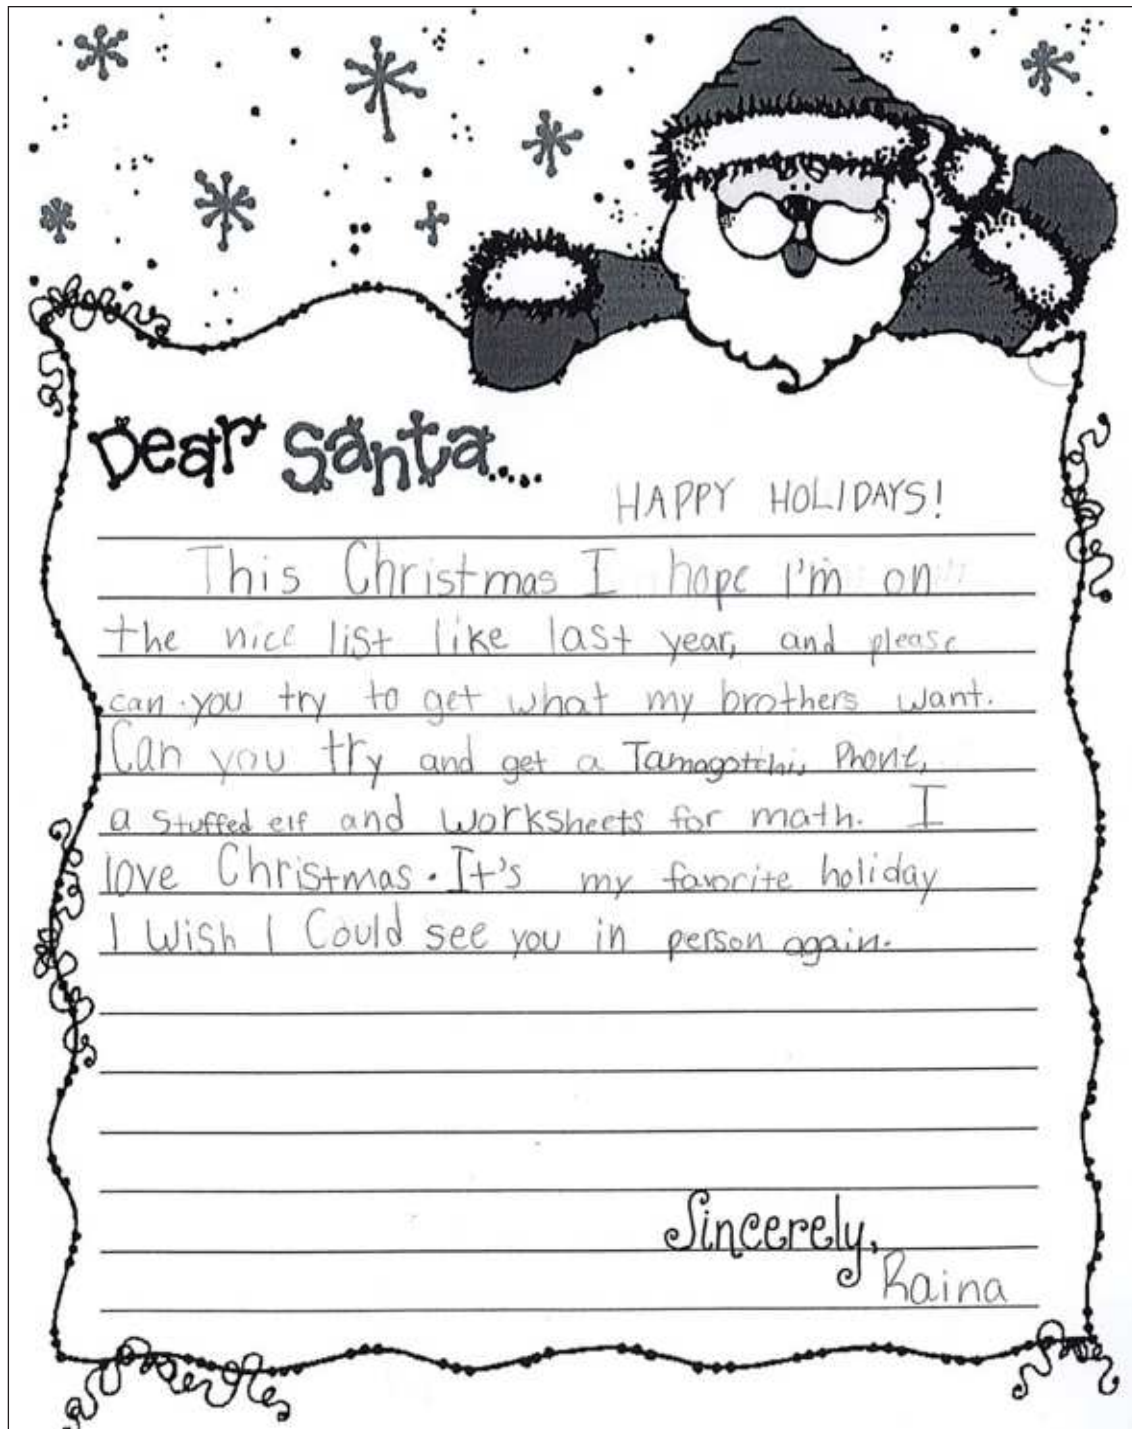 Dear Santa....
HAPPY HOLIDAYS!
This Christmas I hope I'm on
the nice list like last year, and please
can you try to get what my brothers want.
Can you try and get a Tamagotchi Phone,
a stuffed elf and worksheets for math. I
love Christmas. It's my favorite holiday
I Wish I Could see you in person again.
Sincerely,
Raina